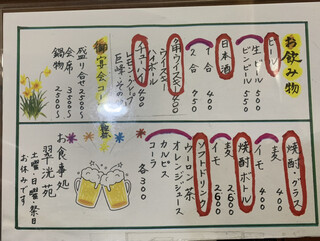 お飲み物
ビール
生ビール 500
ビンビール 550
日本酒
1合 400
2合 750
角ウイスキー
ウイスキー
ハイボール 400
チューハイ 400
レモン・グレープ
巨峰・その他
御宴会コース
盛り合せ 2500〜
会席 3500〜
鍋物 2500〜
焼酎・グラス
麦 400
イモ 400
焼酎ボトル
イモ 2600
麦 2600
ソフトドリンク
ウーロン茶
オレンジジュース
カルピス
コーラ
各300
お食事処
翠洸苑
土曜・日曜・祭日
お休みです。